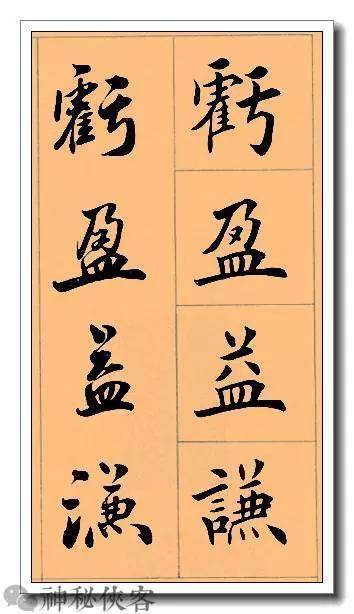 虧盈益謙
虧盈益謙
神秘侠客